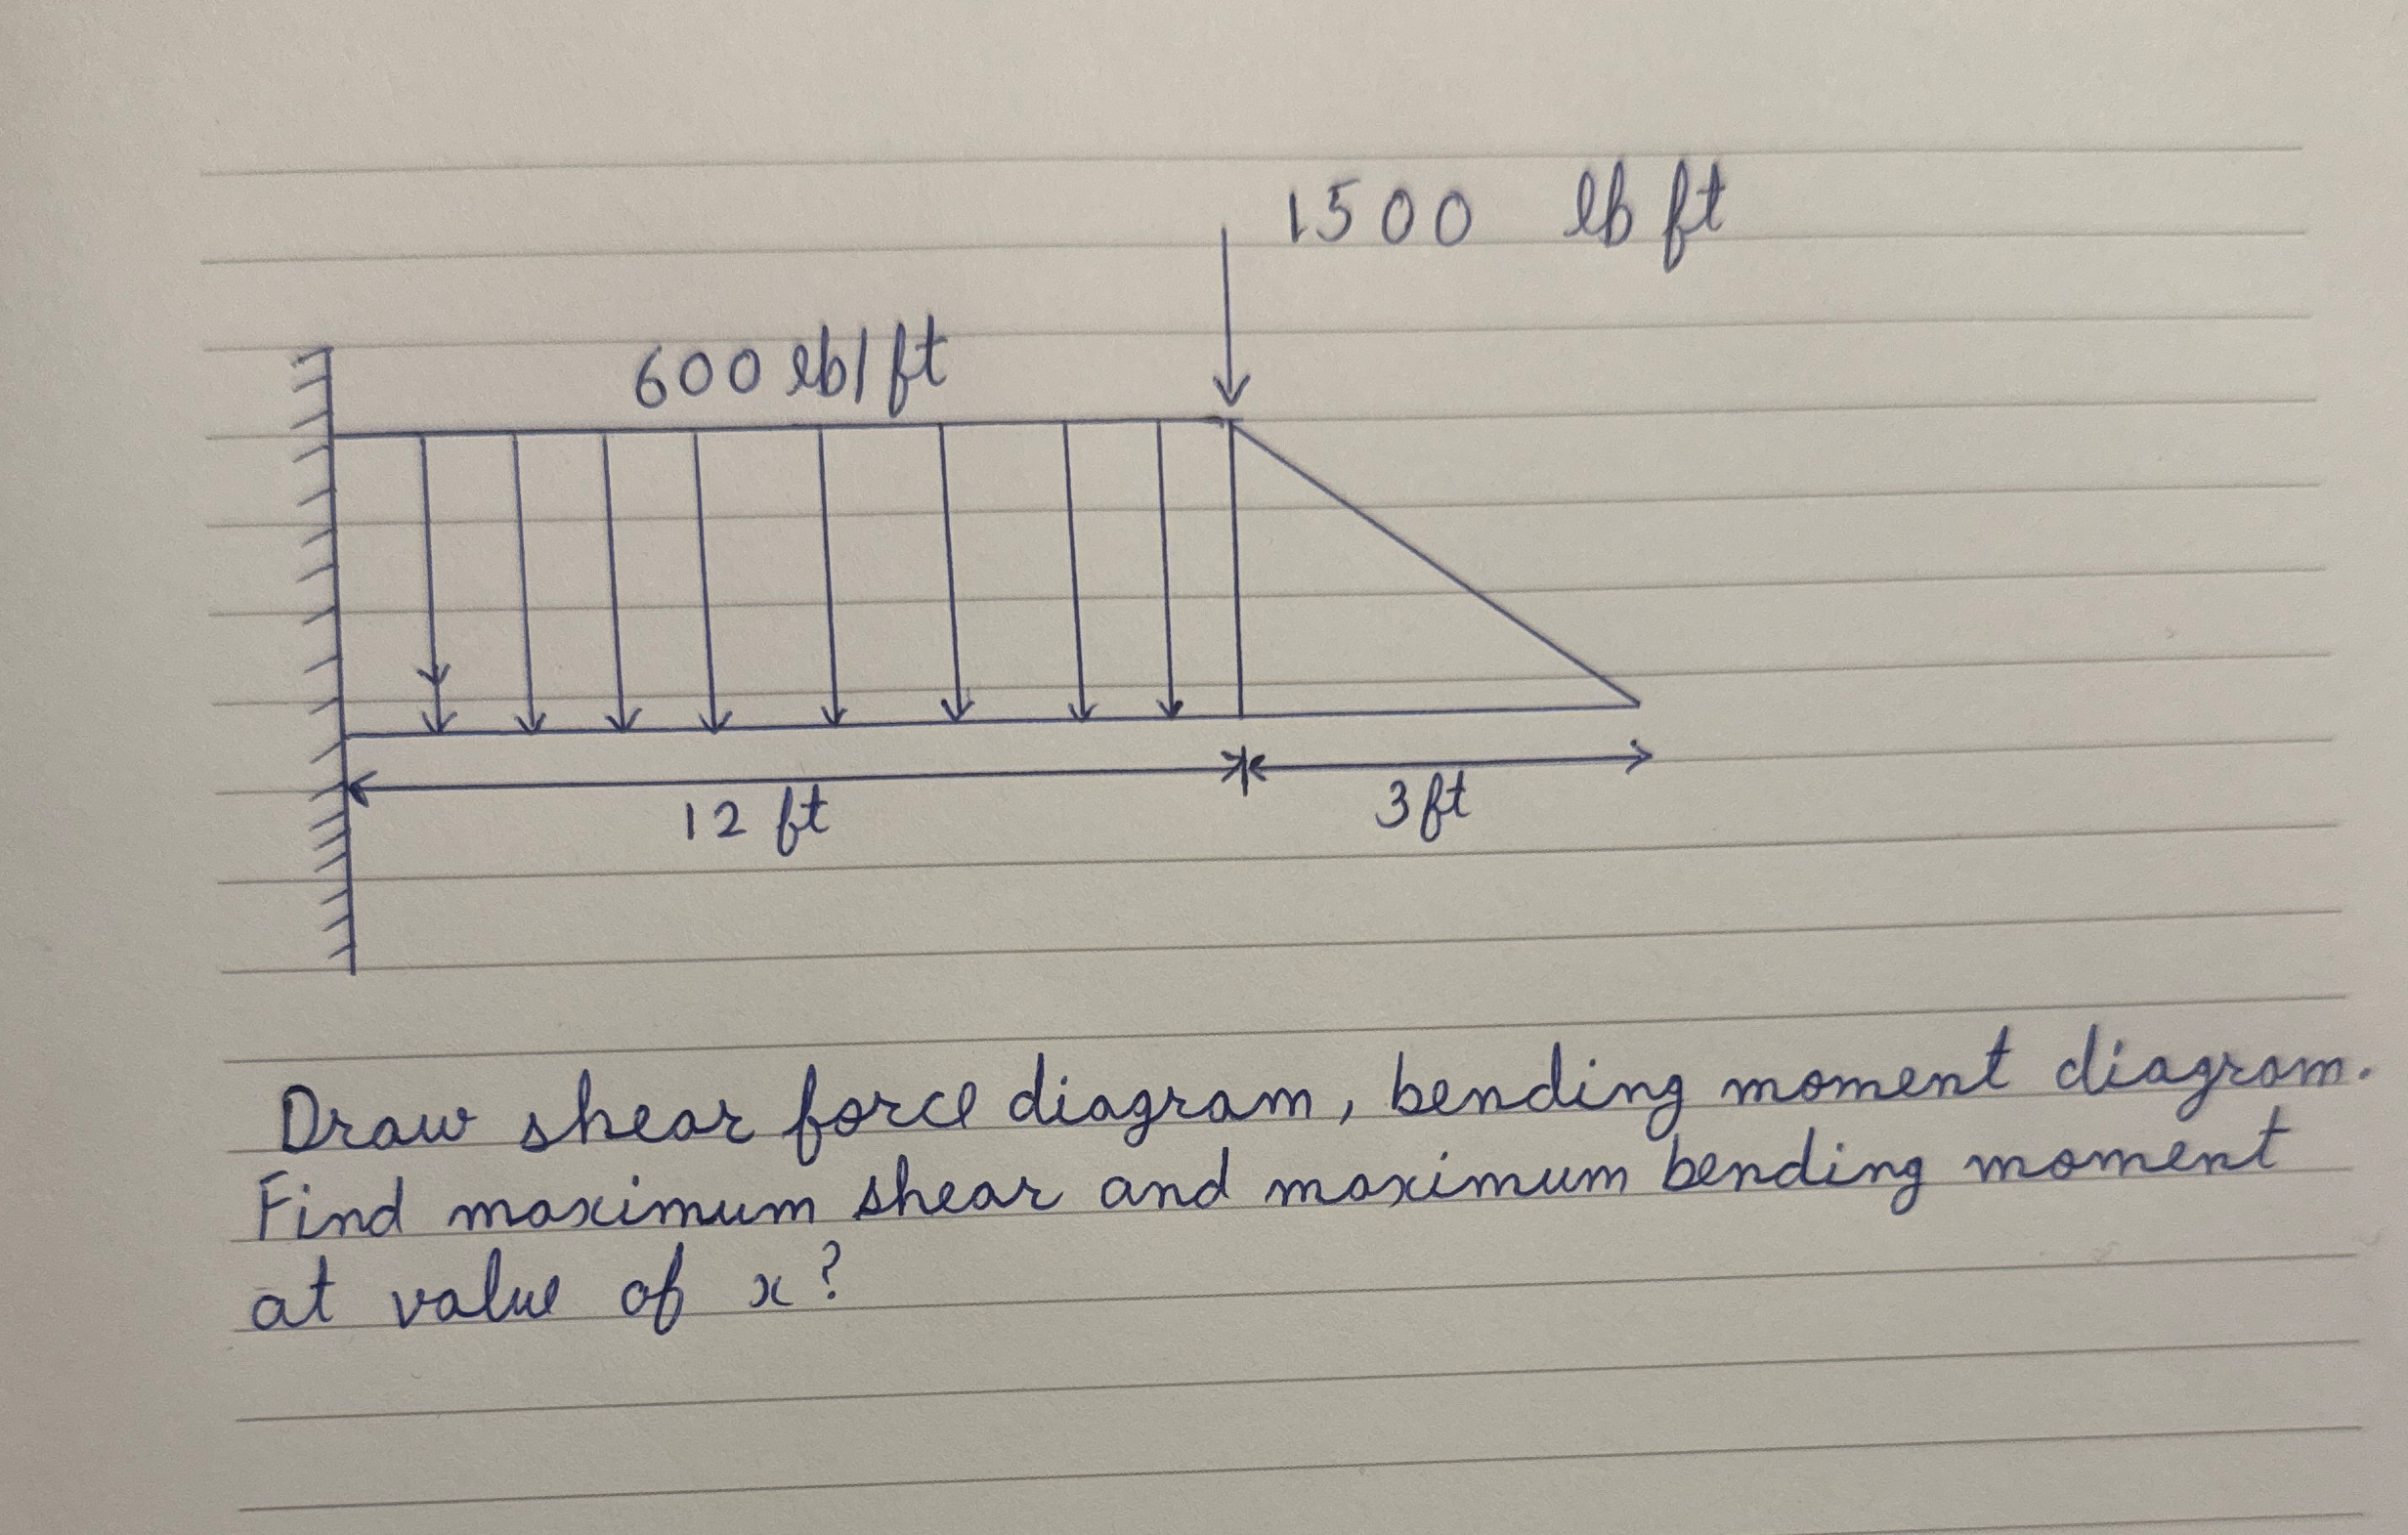 1500 lb ft
600 lb/ft
12 ft
3 ft
Draw shear force diagram, bending moment diagram.
Find maximum shear and maximum bending moment
at value of x?